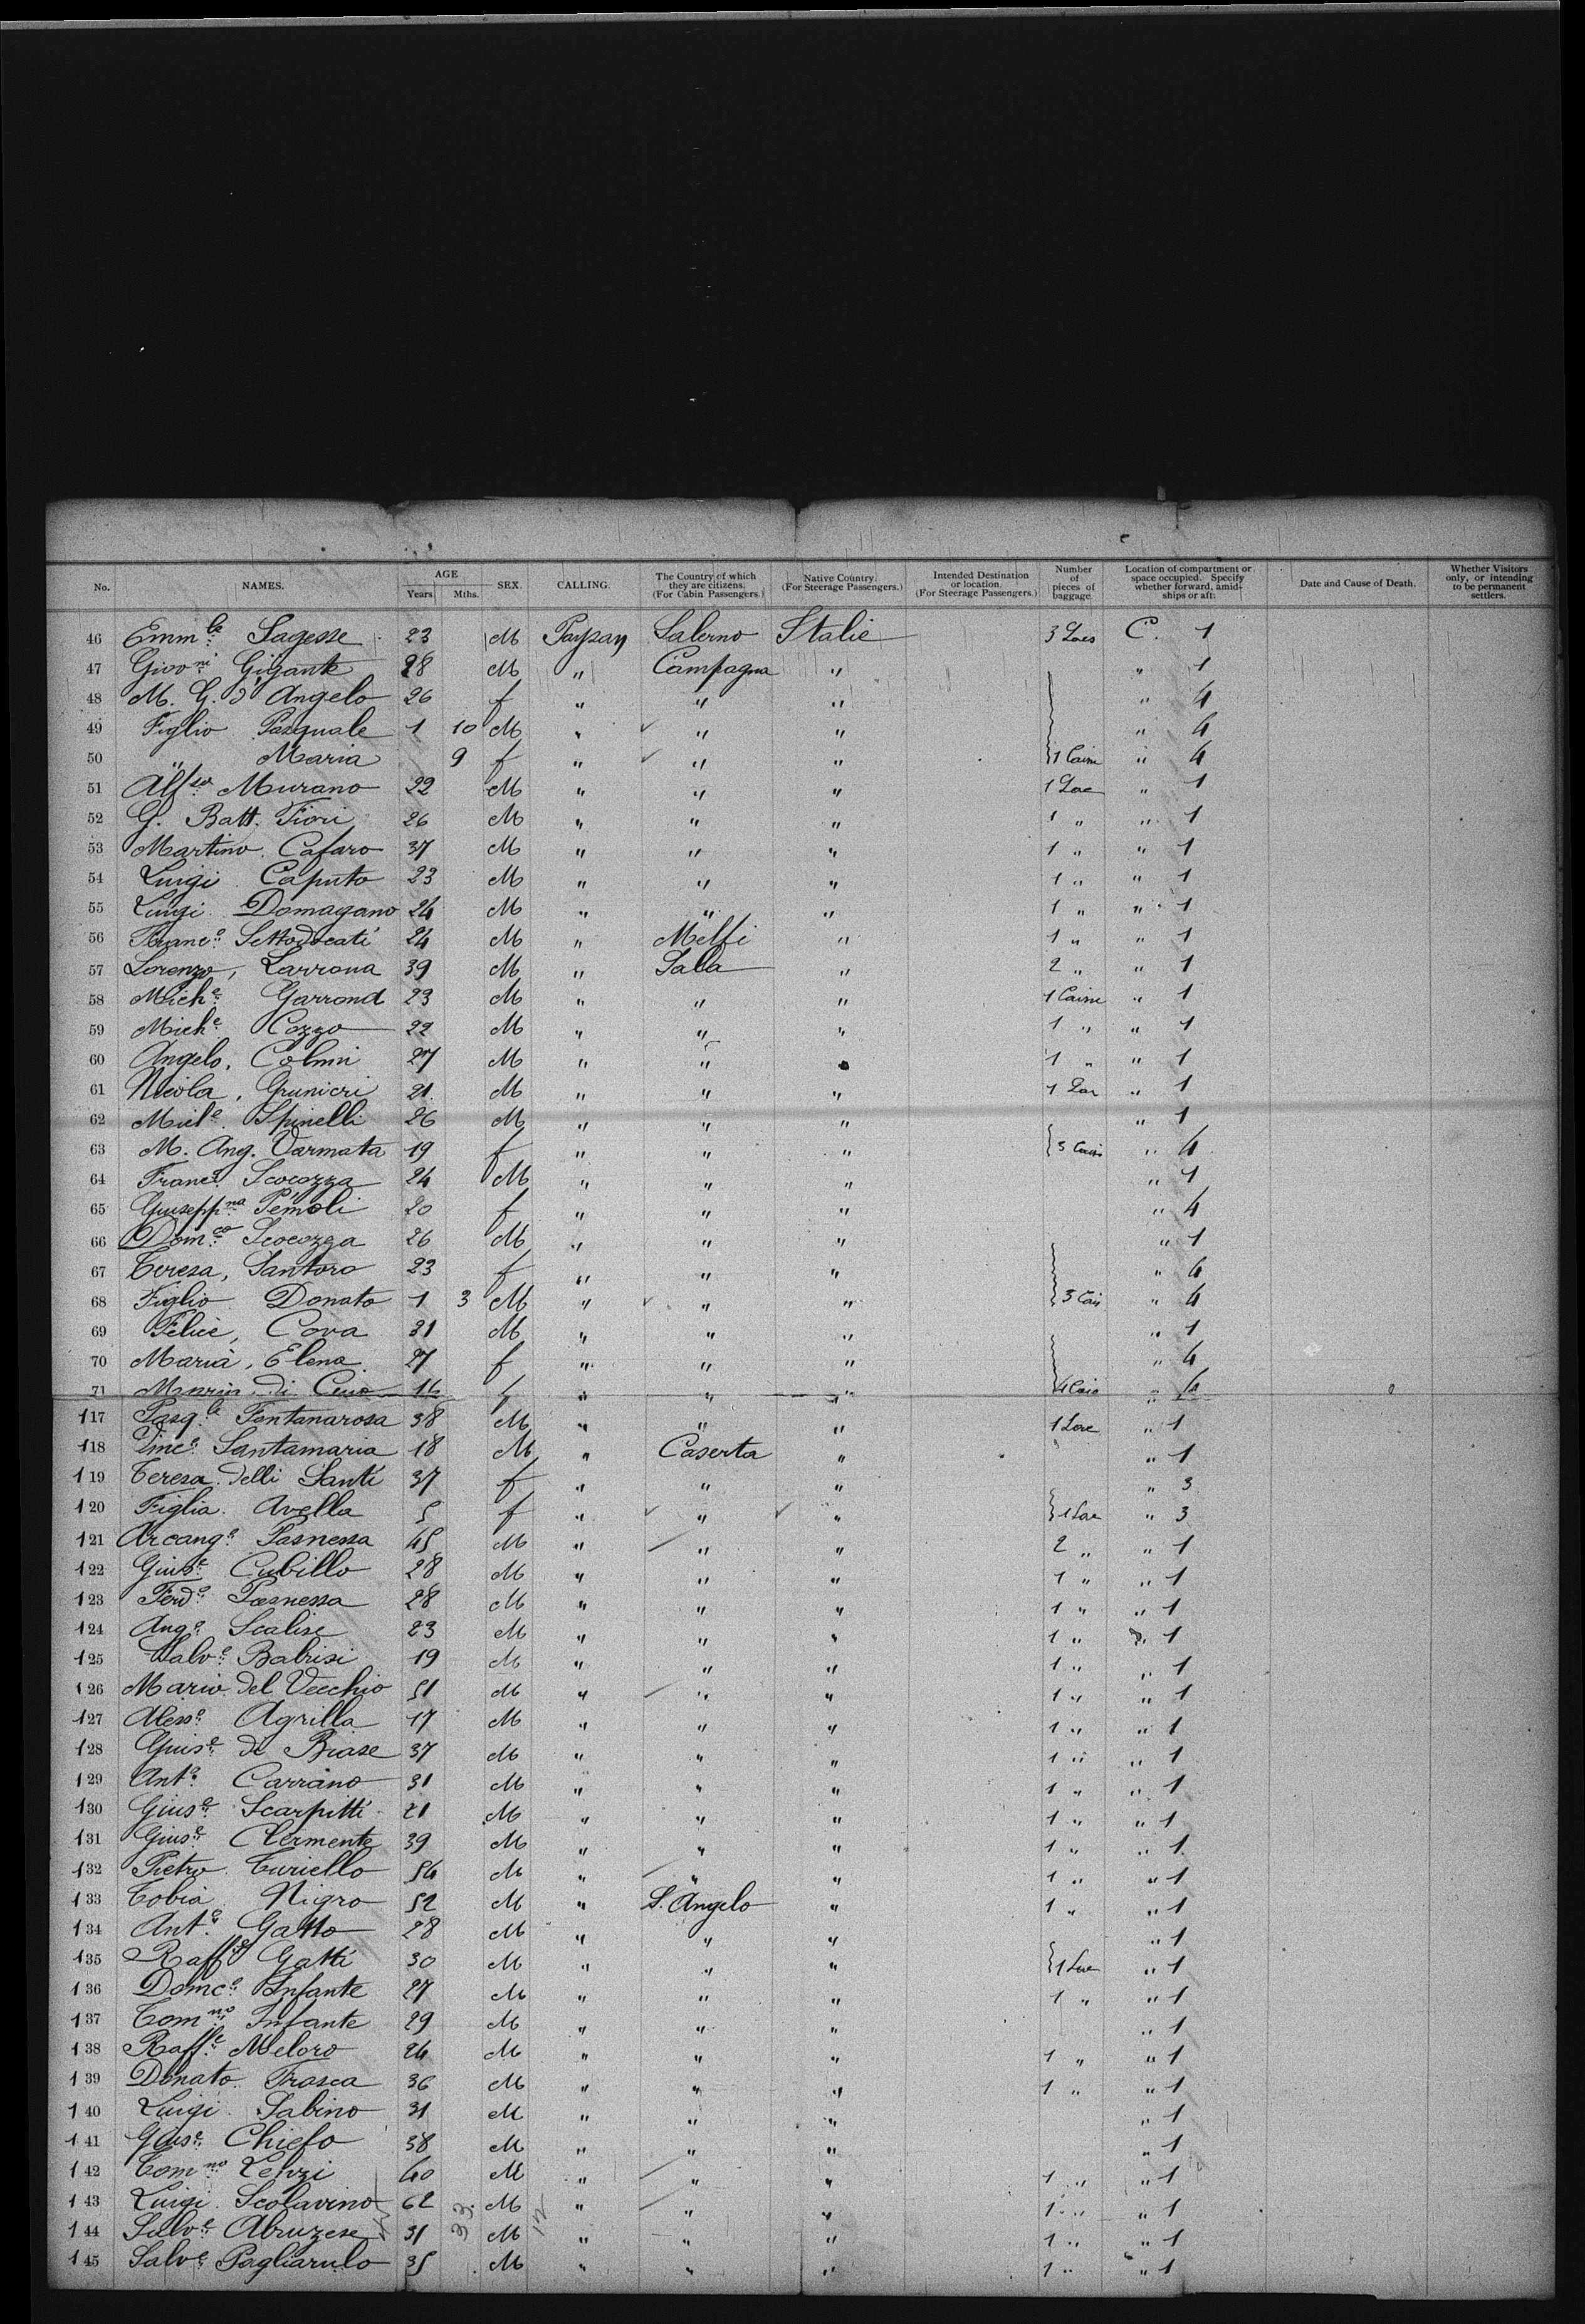 No. NAMES. AGE Years Mths. SEX. CALLING. The Country of which they are citizens. (For Cabin Passengers.) Native Country. (For Steerage Passengers.) Intended Destination or location. (For Steerage Passengers.) Number of pieces of baggage. Location of compartment or space occupied. Specify whether forward, amidships or aft. Date and Cause of Death. Whether Visitors only, or intending to be permanent settlers.
46 Emm.le Sagesse 23 M Paysan Salerno Italie 3 C. 1
47 Giov.ni Gigante 28 M " Campagna " " 1
48 M. G. d'Angelo 26 f " " " " 4
49 Figlio Pasquale 1 10 M " " " " 4
50 " Maria 9 f " " " 1 " 4
51 Alf.so Murano 22 M " " " 1 " 1
52 G. Batt. Fiori 26 M " " " 1 " " 1
53 Martino Cafaro 37 M " " " 1 " " 1
54 Luigi Caputo 23 M " " " 1 " " 1
55 Luigi Domagano 24 M " " " 1 " " 1
56 Franc.o 24 M " Melfi " 1 " " 1
57 Lorenzo, Larrona 39 M " Sala " 2 " " 1
58 Mich.e Garrond 23 M " " " 1 " 1
59 Mich.e Cozzo 22 M " " " 1 " " 1
60 Angelo, Colmi 27 M " " " 1 " " 1
61 Nicola, Grunieri 21 M " " " 1 " 1
62 Mich.e Spinelli 26 M " " " " 1
63 M. Ang. Varmata 19 f " " " 3 " 4
64 Franc.o Scocozza 24 M " " " " 1
65 Giusepp.na Pemoli 20 f " " " " 4
66 Dom.co Scocozza 26 M " " " " 1
67 Teresa, Santoro 23 f " " " " 4
68 Figlio Donato 1 3 M " " " 3 " 4
69 Felice, Cova 31 M " " " " 1
70 Maria, Elena 27 f " " " " 4
71 di 16 f " " " 4 " 4
117 Pasq.le Fontanarosa 38 M " " " 1 " 1
118 Vinc.o Santamaria 18 M " Caserta " " 1
119 Teresa delli Santi 37 f " " " " 3
120 Figlia Avella 5 f " " " 1 " 3
121 Arcang.o Pasnessa 45 M " " " 2 " " 1
122 Gius.e Cubillo 28 M " " " 1 " " 1
123 Ferd.o Pasnessa 28 M " " " 1 " " 1
124 Ang.o Scalise 23 M " " " 1 " " 1
125 Salv.e Babrisi 19 M " " " 1 " " 1
126 Mario del Vecchio 51 M " " " 1 " " 1
127 Aless.o Agrilla 17 M " " " 1 " " 1
128 Gius.e de Biase 37 M " " " 1 " " 1
129 Ant.o Carrano 31 M " " " 1 " " 1
130 Gius.e Scarpitti 21 M " " " 1 " " 1
131 Gius.e Clemente 39 M " " " 1 " " 1
132 Pietro Turiello 54 M " " " 1 " " 1
133 Tobia Nigro 52 M " S. Angelo " 1 " " 1
134 Ant.o Gatto 28 M " " " " 1
135 Raff.le Gatti 30 M " " " 1 " 1
136 Domc.o Infante 27 M " " " 1 " " 1
137 Tom.no Infante 29 M " " " " 1
138 Raff.le Meloro 24 M " " " 1 " " 1
139 Donato Frasca 36 M " " " 1 " " 1
140 Luigi Sabino 31 M " " " " 1
141 Gius.e Chiefo 38 M " " " " 1
142 Tom.no Lenzi 40 M " " " 1 " " 1
143 Luigi Scolavino 62 M " " " 1 " " 1
144 Salv.e Abruzese 31 33 M 12 " " " 1 " " 1
145 Salv.e Pagliarulo 35 M " " " 1 " " 1